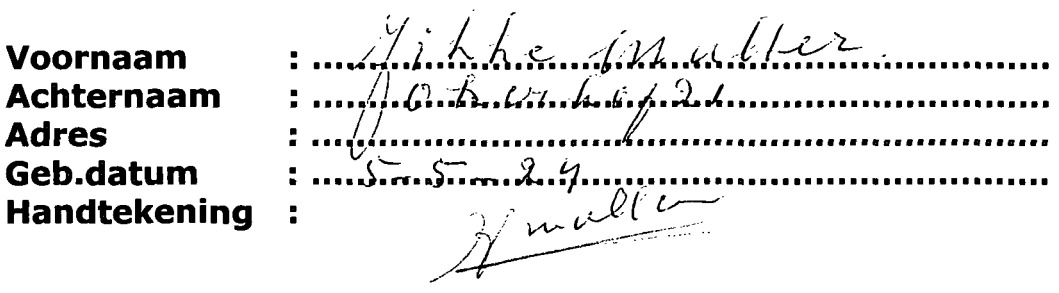 Voornaam : Jikke Muller.
Achternaam :
Adres :
Geb.datum : 5-5-24
Handtekening : Muller